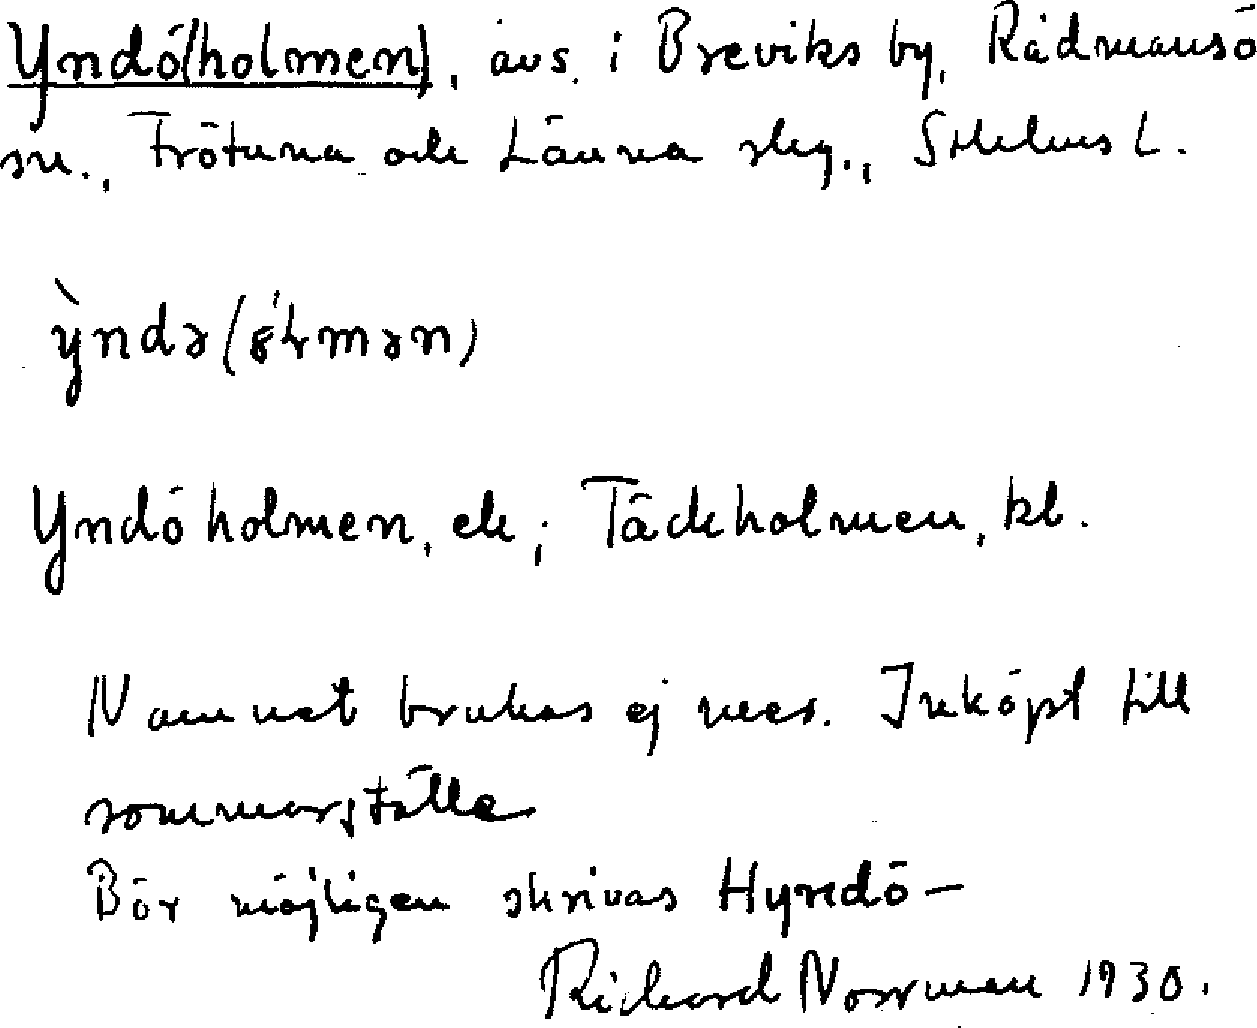 Yndö(holmen), avs. i Breviks by, Rådmansö
sn., Frötuna och Länna skg., Sthlms L.
ỳndə(
Yndöholmen, ek; Täckholmen, kb.
Namnet brukas ej mer. Inköpt till
sommarställe
Bör möjligen skrivas Hyndö-
Richard Norrman 1930.